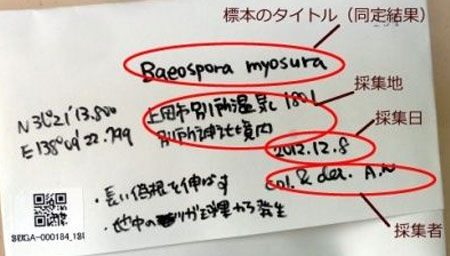 標本のタイトル（同定結果）
Baeospora myosura
採集地
N36°21'13.800
E138°09'22.799
上田市別所温泉1801
別所神社境内
採集日
2012.12.8
col. & det. A.N
・長い偽根を伸ばす
・地中の
球果から発生
採集者
SUGA-000184_1SI